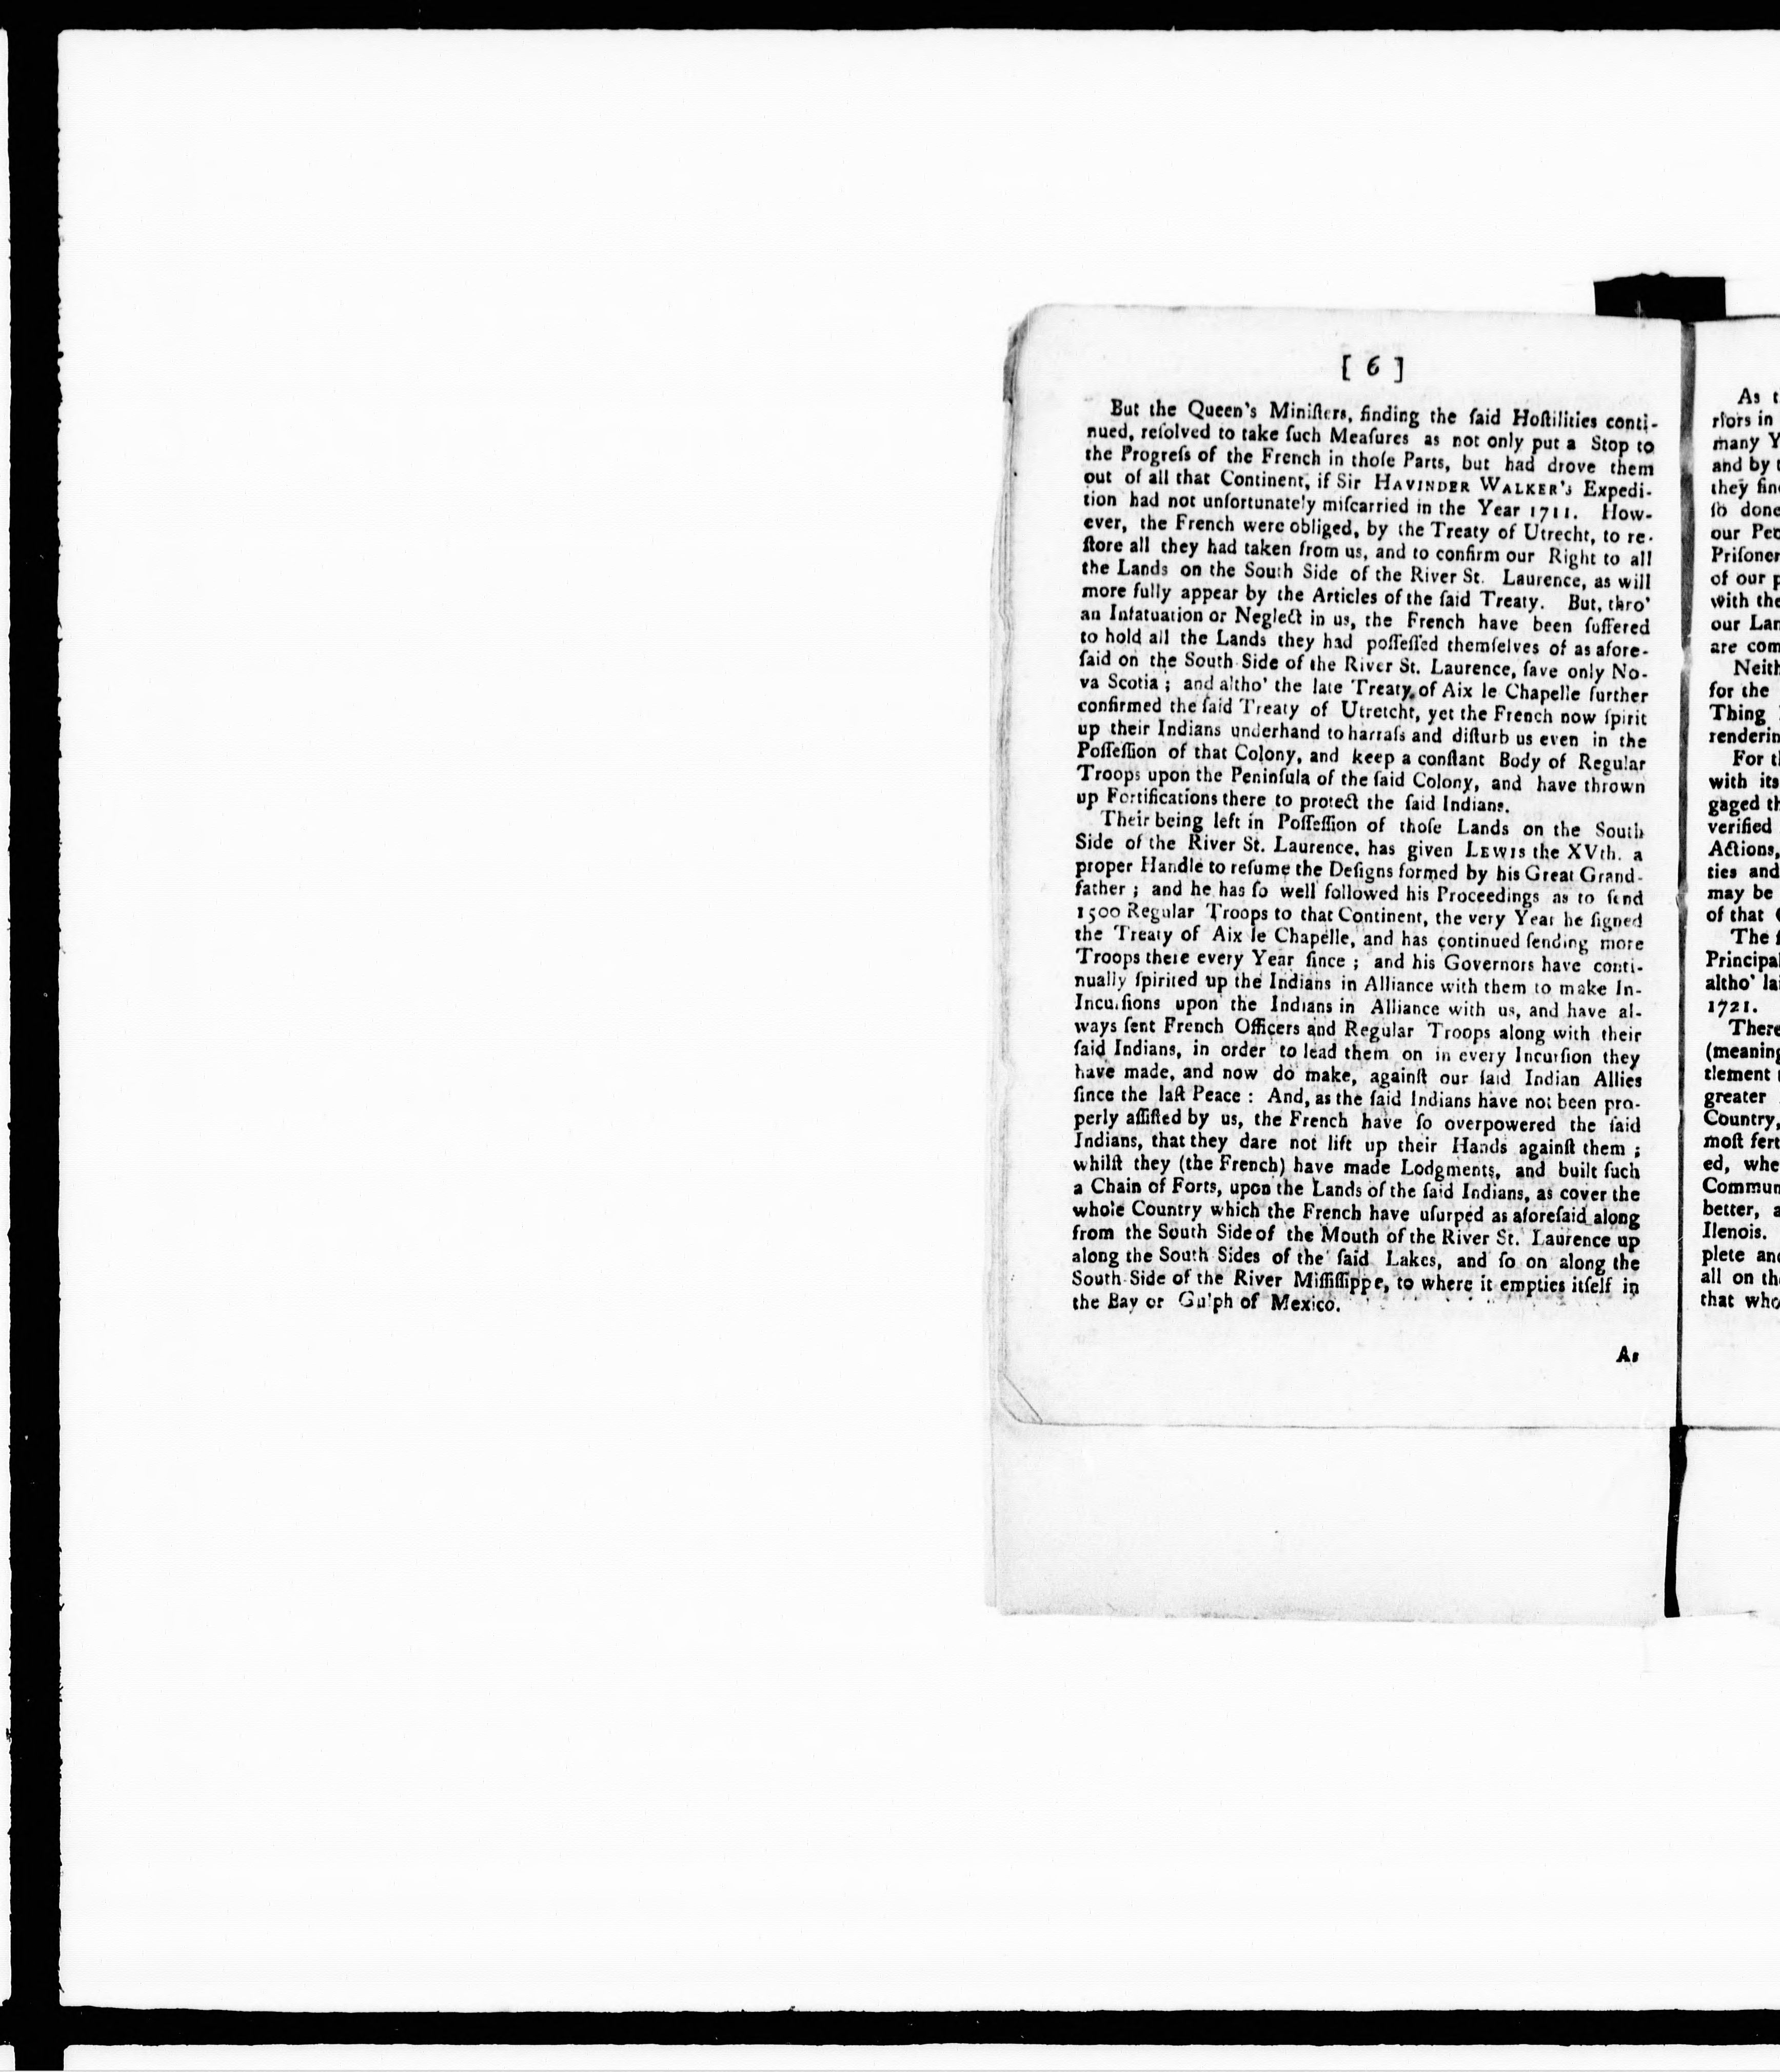 [ 6 ]
But the Queen's Miniſters, finding the ſaid Hoſtilities conti-
nued, reſolved to take ſuch Meaſures as not only put a Stop to
the Progreſs of the French in thoſe Parts, but had drove them
out of all that Continent, if Sir HAVINDER WALKER's Expedi-
tion had not unfortunately miſcarried in the Year 1711. How-
ever, the French were obliged, by the Treaty of Utrecht, to re-
ſtore all they had taken from us, and to confirm our Right to all
the Lands on the South Side of the River St. Laurence, as will
more fully appear by the Articles of the ſaid Treaty. But, thro'
an Infatuation or Neglect in us, the French have been ſuffered
to hold all the Lands they had poſſeſſed themſelves of as afore-
ſaid on the South Side of the River St. Laurence, ſave only No-
va Scotia; and altho' the late Treaty of Aix le Chapelle further
confirmed the ſaid Treaty of Utretcht, yet the French now ſpirit
up their Indians underhand to harraſs and diſturb us even in the
Poſſeſſion of that Colony, and keep a conſtant Body of Regular
Troops upon the Peninſula of the ſaid Colony, and have thrown
up Fortifications there to protect the ſaid Indians.
Their being left in Poſſeſſion of thoſe Lands on the South
Side of the River St. Laurence, has given LEWIS the XVth. a
proper Handle to reſume the Deſigns formed by his Great Grand-
father; and he has ſo well followed his Proceedings as to ſend
1500 Regular Troops to that Continent, the very Year he ſigned
the Treaty of Aix le Chapelle, and has continued ſending more
Troops there every Year ſince; and his Governors have conti-
nually ſpirited up the Indians in Alliance with them to make In-
Incurſions upon the Indians in Alliance with us, and have al-
ways ſent French Officers and Regular Troops along with their
ſaid Indians, in order to lead them on in every Incurſion they
have made, and now do make, againſt our ſaid Indian Allies
ſince the laſt Peace: And, as the ſaid Indians have not been pro-
perly aſſiſted by us, the French have ſo overpowered the ſaid
Indians, that they dare not lift up their Hands againſt them;
whilſt they (the French) have made Lodgments, and built ſuch
a Chain of Forts, upon the Lands of the ſaid Indians, as cover the
whole Country which the French have uſurped as aforeſaid along
from the South Side of the Mouth of the River St. Laurence up
along the South Sides of the ſaid Lakes, and ſo on along the
South Side of the River Miſſiſſippe, to where it empties itſelf in
the Bay or Gulph of Mexico.
As
As t
riors in
many Y
and by t
they fin
ſo done
our Peo
Priſoner
of our p
with the
our Lan
are com
Neith
for the
Thing
renderin
For th
with its
gaged th
verified
Actions,
ties and
may be
of that
The ſ
Principal
altho' la
1721.
There
(meaning
tlement
greater
Country,
moſt fert
ed, whe
Commun
better, a
Ilenois.
plete and
all on th
that who